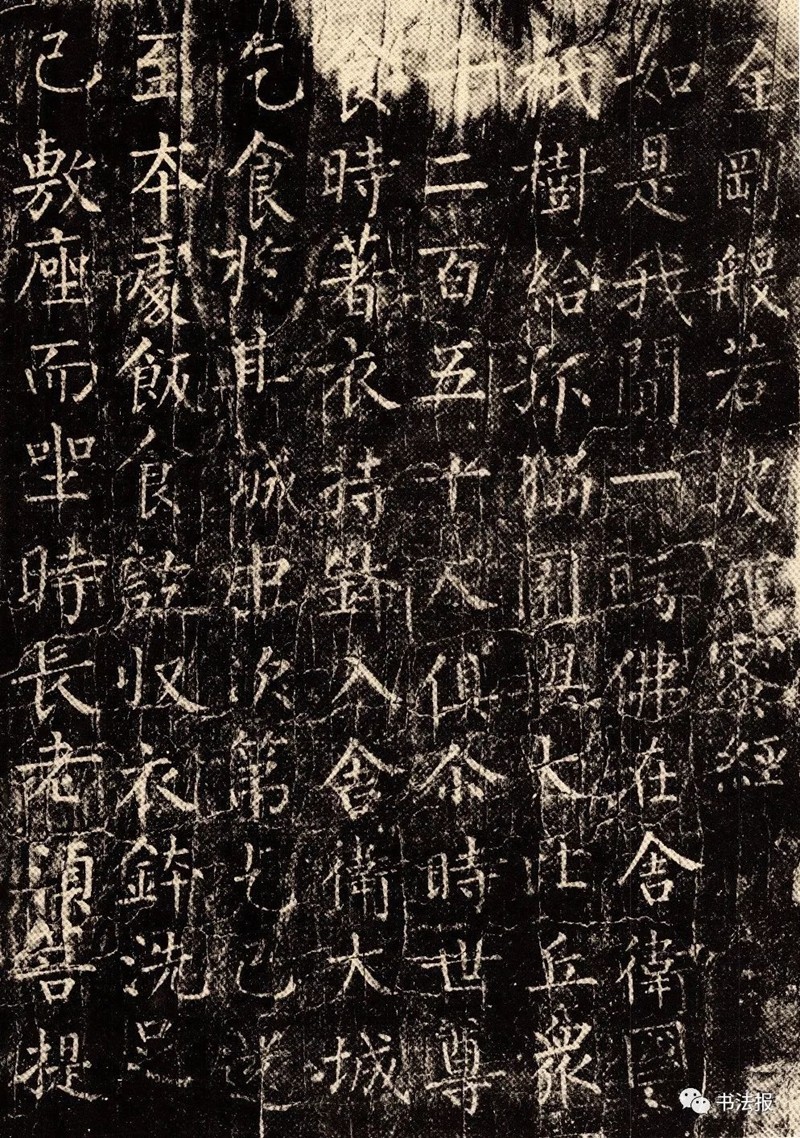 金剛般若波羅蜜經
如是我聞一時佛在舍衛國
祇樹給孤獨園與大比丘眾
千二百五十人俱尒時世尊
食時著衣持鉢入舍衛大城
乞食於其城中次第乞已還
至本處飯食訖収衣鉢洗足
已敷座而坐時長老須菩提
书法报